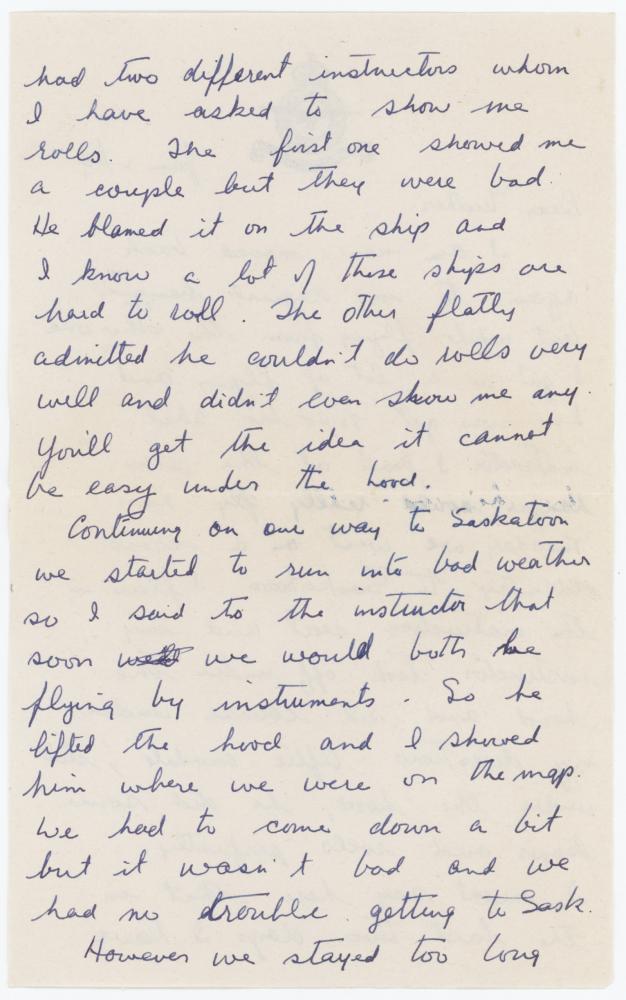 had two different instructors whom
I have asked to show me
rolls. The first one showed me
a couple but they were bad.
He blamed it on the ship and
I know a lot of these ships are
hard to roll. The other flatly
admitted he couldn't do rolls very
well and didn't even show me any.
You'll get the idea it cannot
be easy under the hood.
Continuing on our way to Saskatoon
we started to run into bad weather
so I said to the instructor that
soon we would both be
flying by instruments. So he
lifted the hood and I showed
him where we were on the map.
We had to come down a bit
but it wasn't bad and we
had no trouble getting to Sask.
However we stayed too long